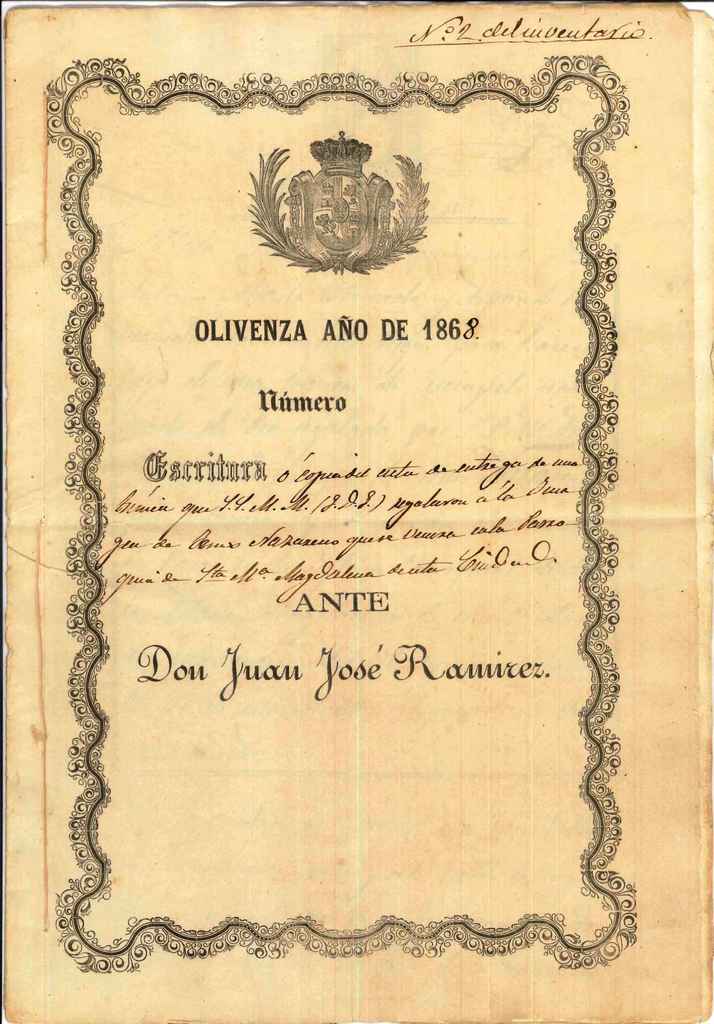 Nº 2 del inventario.
OLIVENZA AÑO DE 1868.
Número
Escritura ó copia del acta de entrega de una
túnica que S.S. M.M. (q.D.g.) regalaron á la Ima
gen de Jesus Nazareno que se venera en la Parro
quia de Sta Mª Magdalena de esta Ciudad
ANTE
Don Juan José Ramirez.